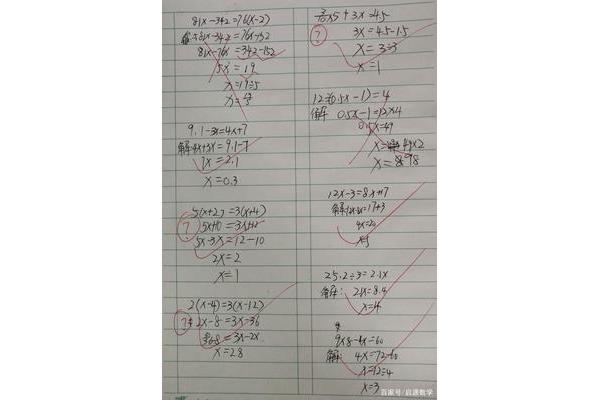 81x-342=76(x-2)
解:81x-342=76x-152
81x-76x=342-152
5x=19
x=19÷5
9.1-3x=4x+7
解:4x+3x=9.1-7
7x=2.1
x=0.3
5(x+2)=3(x+4)
5x+10=3x+12
5x-3x=12-10
2x=2
x=1
2(x-4)=3(x-12)
2x-8=3x-36
36-8=3x-2x
x=28
x5+3x=4.5
3x=4.5-1.5
x=3÷3
x=1
12÷(0.5x-1)=4
解 0.5x-1=12×4
0.5x=49
x=49×2
x=98
12x-3=8x+17
解:12x-8x=17+3
4x=20
x=5
25.2÷3=2.1x
解: 2.1x=8.4
x=4
9x8-4x=60
解: 4x=72-60
x=12÷4
x=3
百家号/启源数学